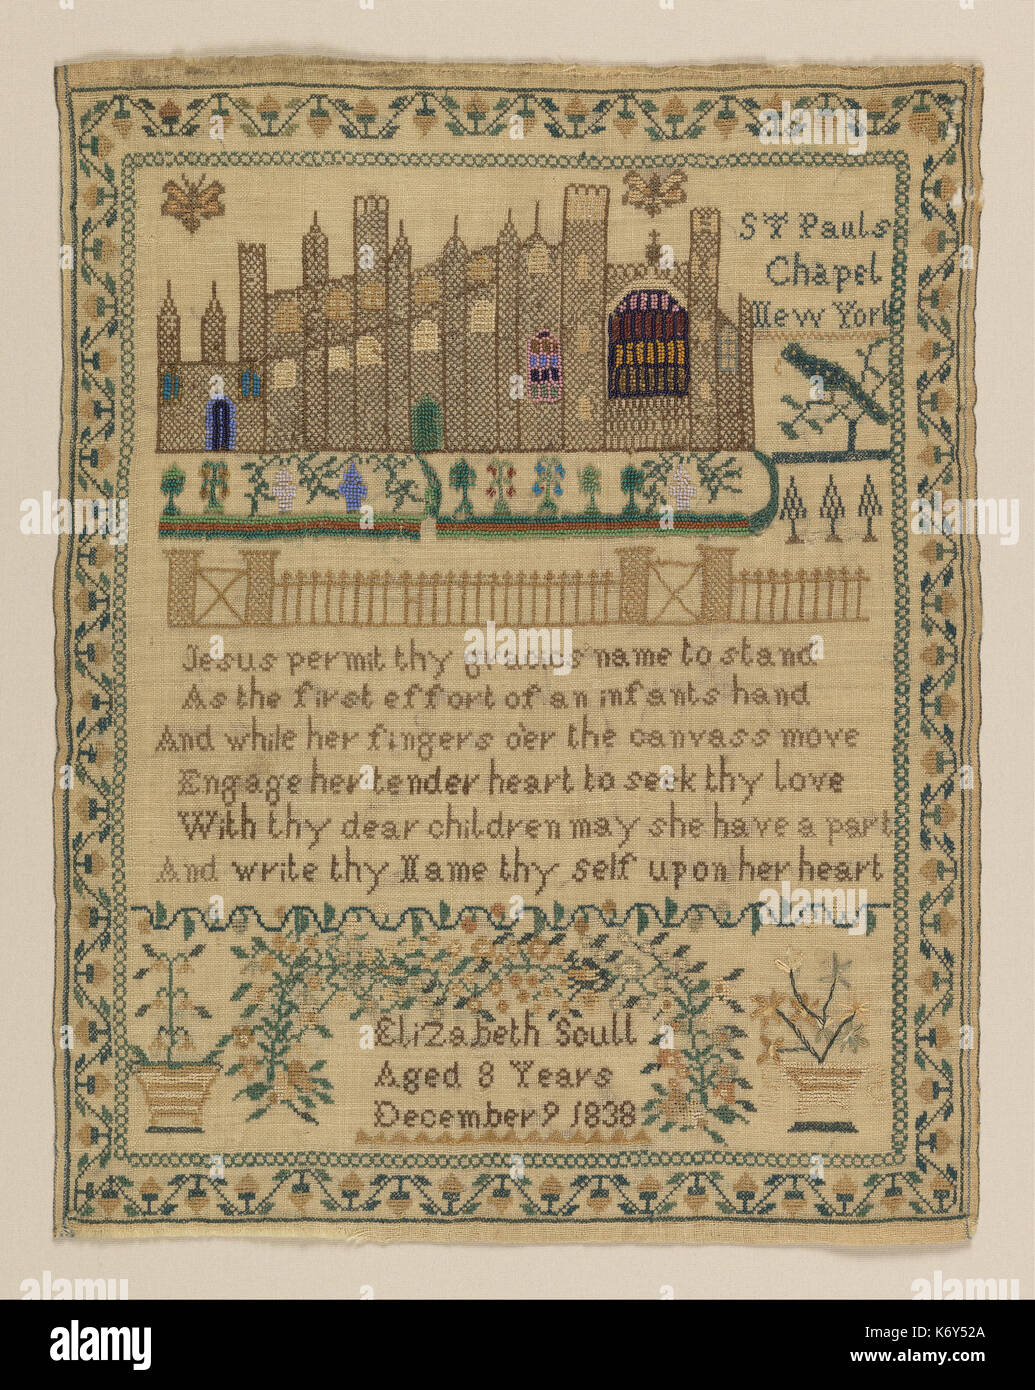 St Pauls
Chapel
New York
Jesus permit thy gracios name to stand
As the first effort of an infants hand
And while her fingers o'er the canvass move
Engage her tender heart to seek thy love
With thy dear children may she have a part
And write thy Name thy self upon her heart
Elizabeth Scull
Aged 8 Years
December 9 1838
a
alamy stock photo
K6Y52A
www.alamy.com